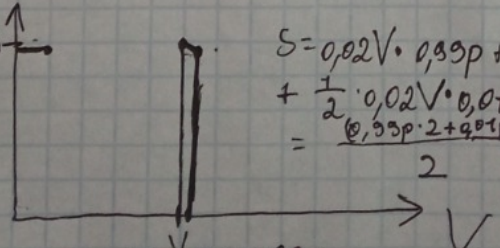 S=0,02V·0,99p+
+ 1/2 ·0,02V·0,0
= (0,99p·2+0,01
2
V
V